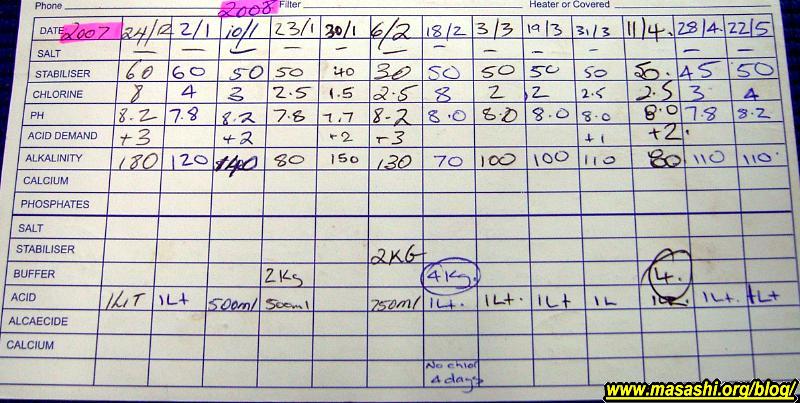 Phone Filter Heater or Covered
2008
DATE 2007 24/12 2/1 10/1 23/1 30/1 6/2 18/2 3/3 19/3 31/3 11/4. 28/4. 22/5
SALT — — — — — — — — — — —
STABILISER 60 60 50 50 40 30 50 50 50 50 50. 45 50
CHLORINE 8 4 3 2.5 1.5 2.5 8 2 2 2.5 2.5 3 4
PH 8.2 7.8 8.2 7.8 7.7 8.2 8.0 8.0 8.0 8.0 8.0 7.8 8.2
ACID DEMAND +3 +2 +2 +3 +1 +2.
ALKALINITY 180 120 140 80 150 130 70 100 100 110 80 110 110.
CALCIUM
PHOSPHATES
SALT
STABILISER 2KG
BUFFER 2Kg 4Kg. 4.
ACID 1LIT 1Lt 500ml 500ml 750ml 1Lt. 1Lt. 1Lt 1L 1Lt. 1Lt. 1Lt
ALCAECIDE
CALCIUM
No chlor
4 days
www.masashi.org/blog/